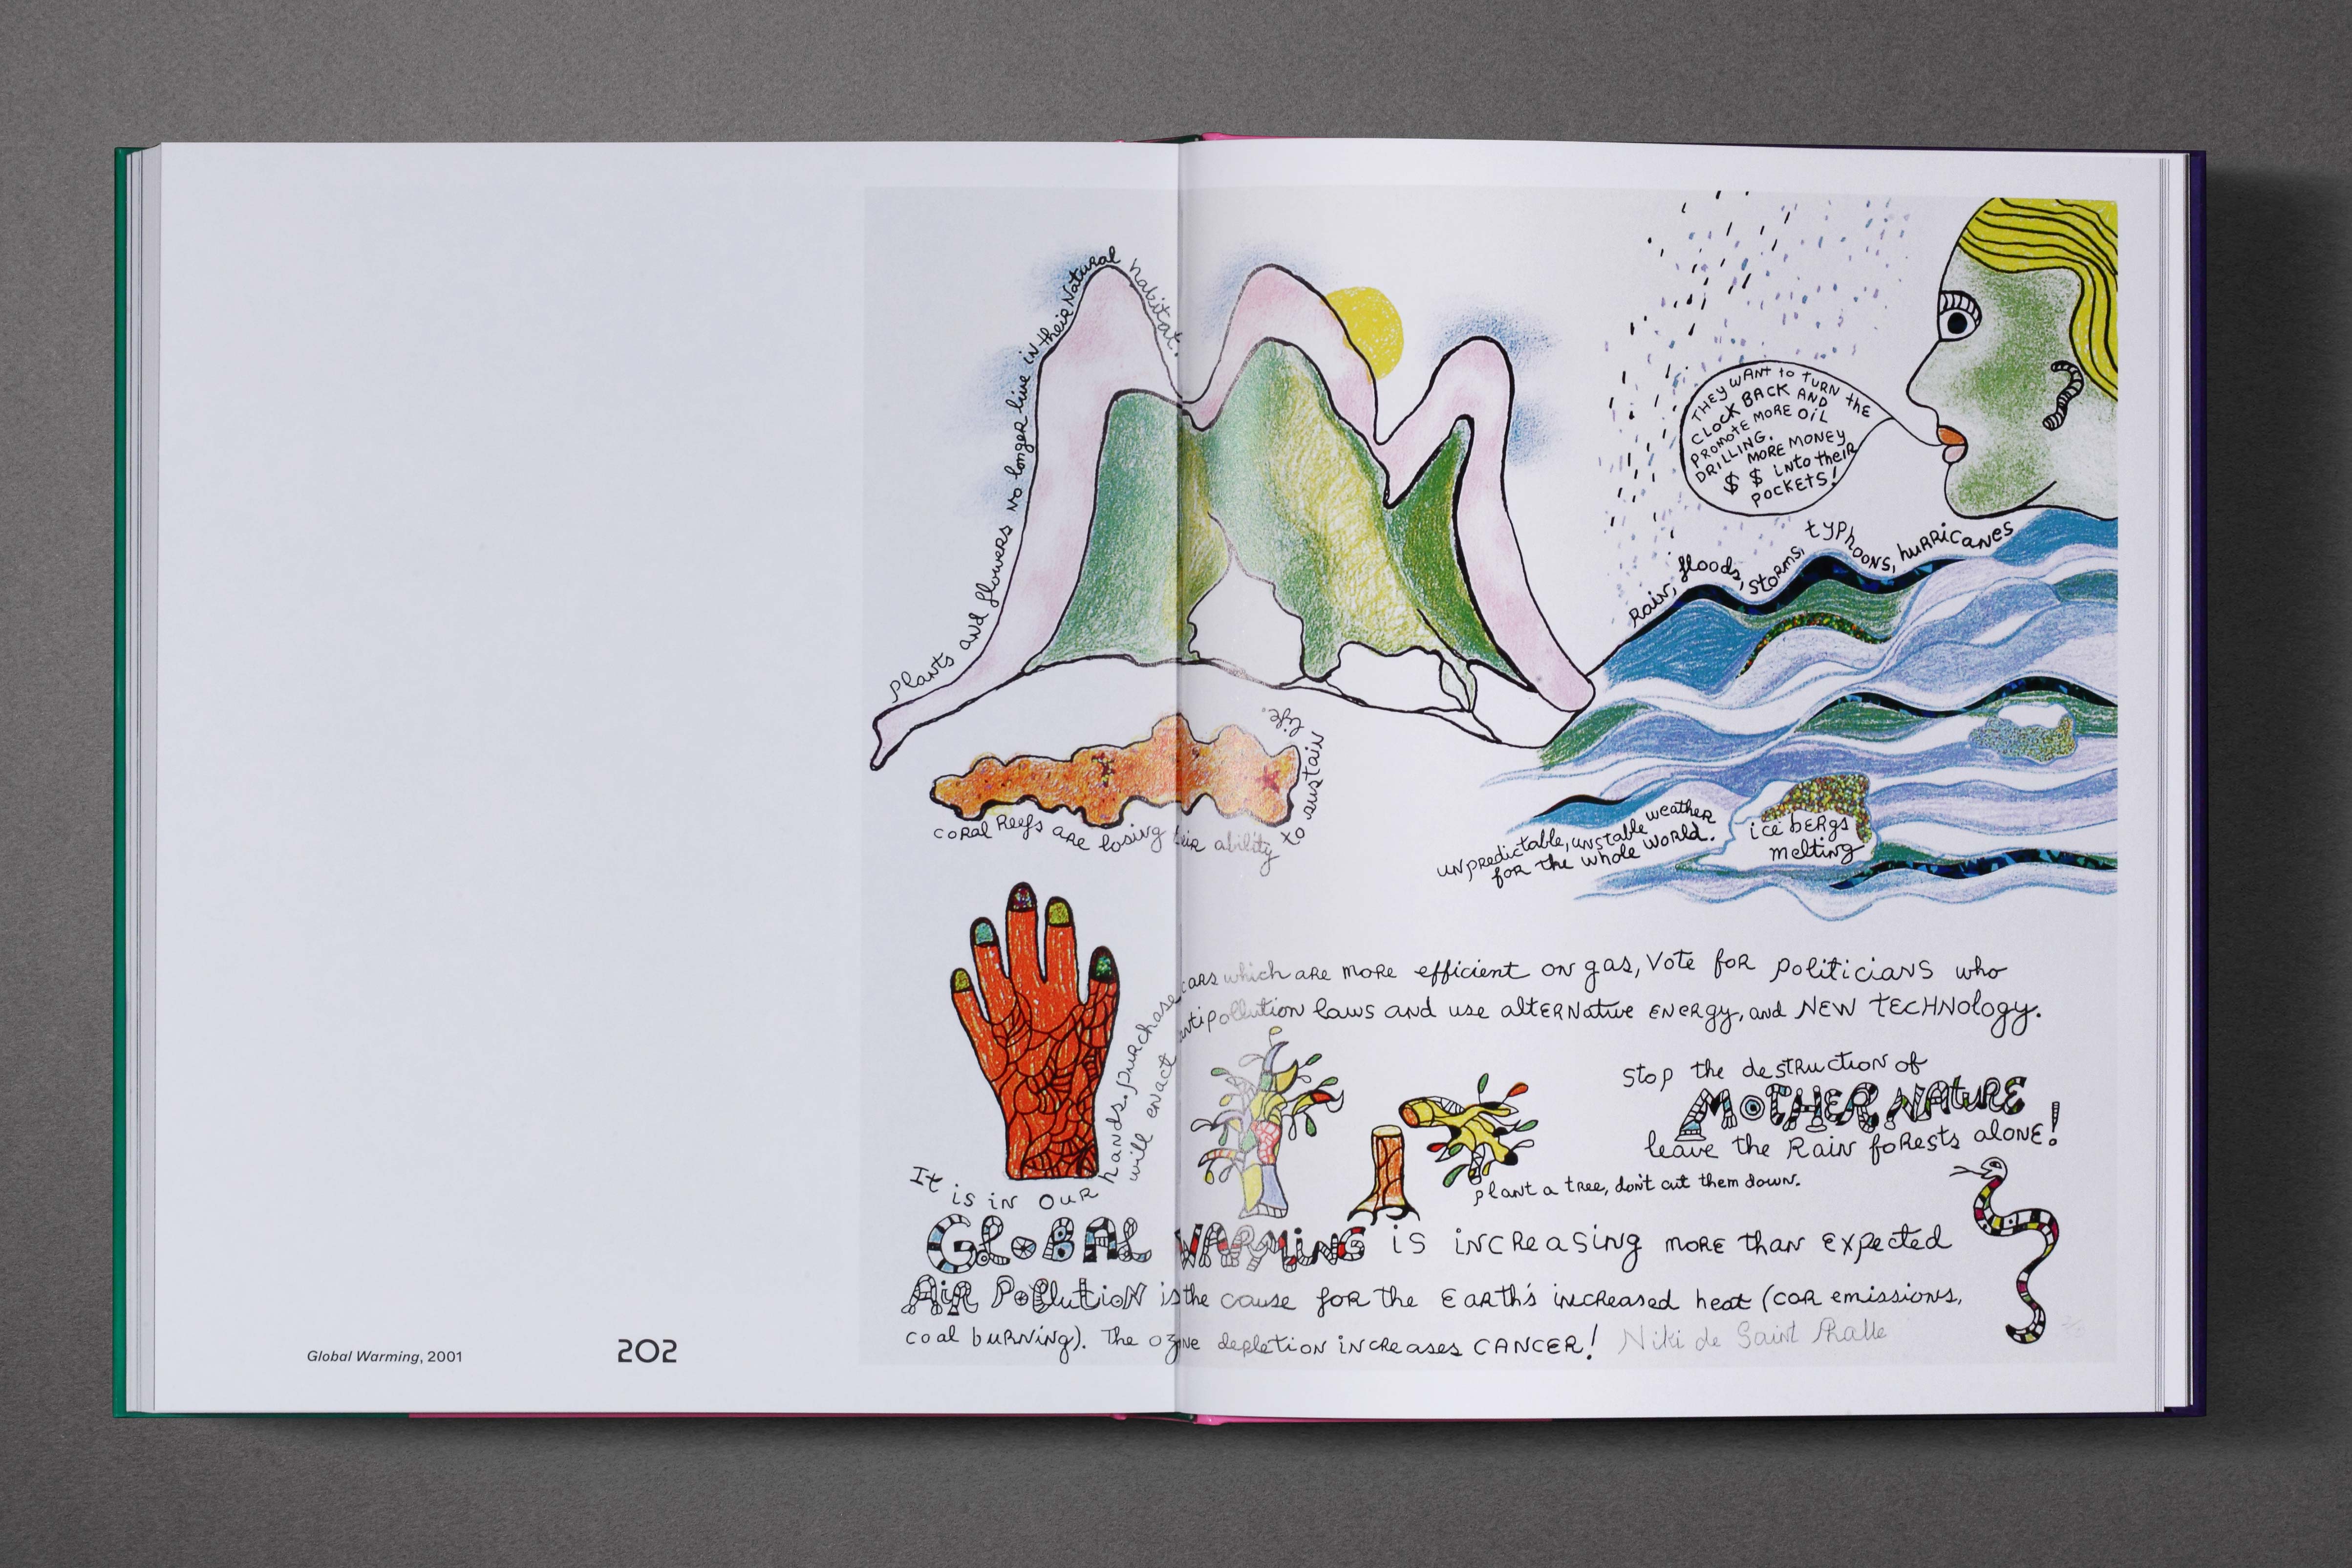 Plants and flowers no longer live in their Natural habitat.
THEY WANT to TURN the
CLOCK BACK AND
PROMOTE MORE OiL
DRILLING.
MORE MONEY
$ $ iNto their
POCKETS!
Rain, floods, storms, typhoons, hurricanes
coral Reefs are losing their ability to sustain life.
unpredictable, unstable weather
for the whole world.
ice bergs
melting
It is in our hands. purchase cars which are more efficient on gas, Vote for politicians who
will enact antipollution laws and use alternative energy, and NEW TECHNology.
Stop the destruction of
MOTHER NATURE
leave the Rain forests alone!
plant a tree, don't cut them down.
GLOBAL WARMiNG is increasing more than expected
AiR Pollution is the cause for the Earth's increased heat (car emissions,
coal burning). The ozone depletion increases CANCER! Niki de Saint Phalle
Global Warming, 2001
202